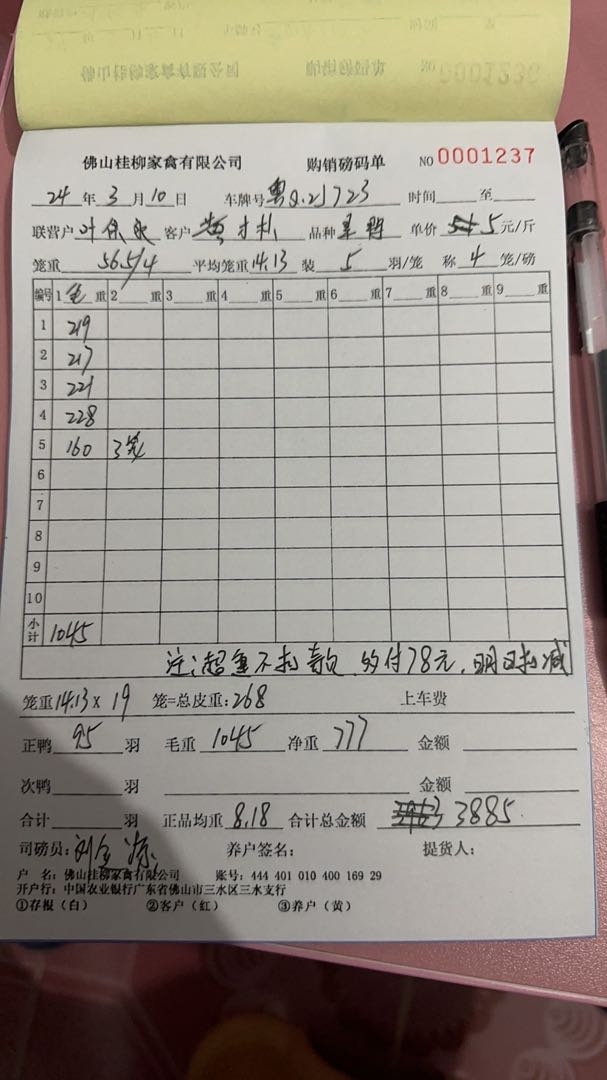 佛山桂柳家禽有限公司 购销磅码单 NO 0001237
24 年 3 月 10 日 车牌号 粤Q.2J723 时间 至
联营户 叶 客户 品种 单价 5 元/斤
笼重 56.5/4 平均笼重 14.13 装 5 羽/笼 称 4 笼/磅
编号 1 毛 重 2 重 3 重 4 重 5 重 6 重 7 重 8 重 9 重
1 219
2 217
3 221
4 228
5 160 3笼
6
7
8
9
10
小计 1045
注:超重不扣款,约付78元,明日扣减
笼重 14.13 x 19 笼=总皮重: 268 上车费
正鸭 95 羽 毛重 1045 净重 777 金额
次鸭 羽 金额
合计 羽 正品均重 8.18 合计总金额 3885
司磅员: 刘 养户签名: 提货人:
户 名: 佛山桂柳家禽有限公司 账号: 444 401 010 400 169 29
开户行: 中国农业银行广东省佛山市三水区三水支行
①存根(白) ②客户(红) ③养户(黄)